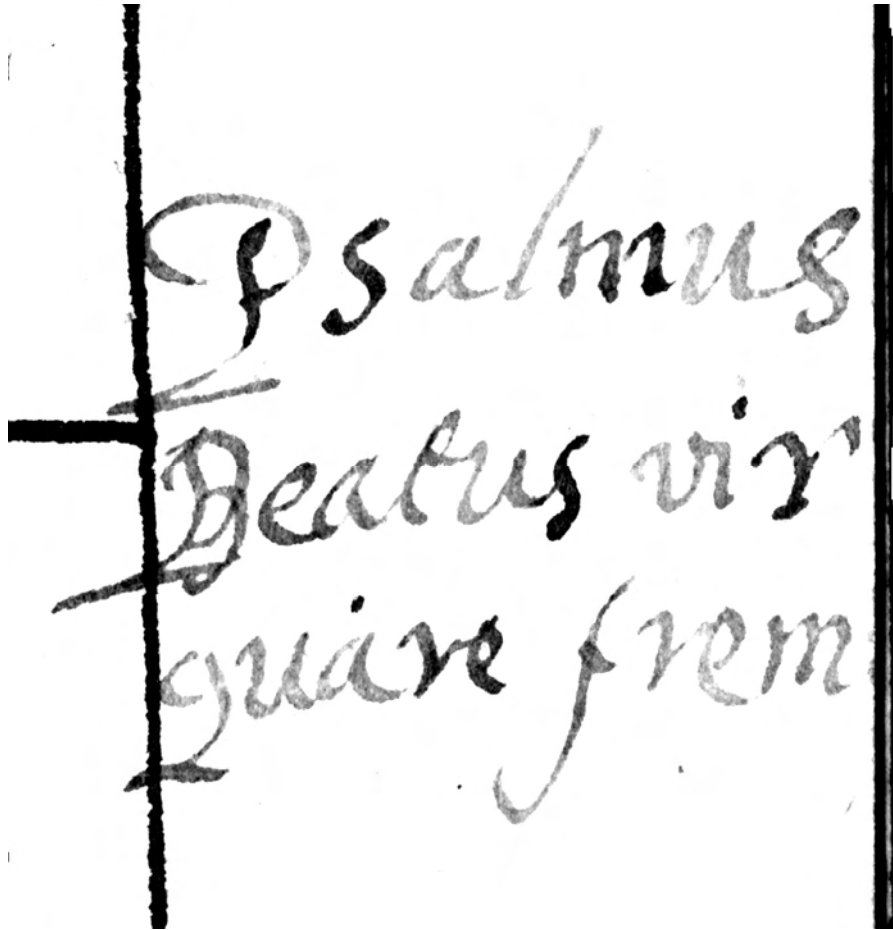 Psalmus
Beatus vir
quare frem